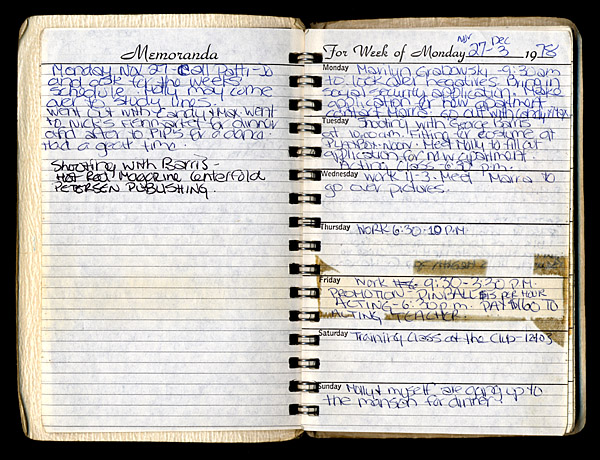 Memoranda
Monday Nov 27 - Call Patti-Jo
and ask for the weeks
schedule. Molly may come
over to study lines.
Went out with Candy & Max. Went
to Nick's Fishmarket for dinner
and after to PIPS for a dance.
Had a great time.
Shooting with Barris -
Hot Rod Magazine Centerfold
PETERSEN PUBLISHING.
For Week of Monday Nov 27 - Dec 3 1978
Monday Marilyn Grabowski - 9:30 am
to look over negatives. Bring
social security application. Make
application for new apartment.
Marra. Go out with Candy
Tuesday Shooting with George Barris
at 10:00 am. costume at
Playboy - Noon. Meet Molly to fill out
application for new apartment.
Acting Class - 6:30 p.m.
Wednesday Work 11-3. Meet Marra to
go over pictures.
Thursday WORK 6:30 - 10 P.M.
Friday Work 9:30 - 3:30 P.M.
PROMOTION - PINBALL $15 PER HOUR
ACTING - 6:30 p.m. PAY $160 TO
ACTING TEACHER
Saturday Training Class at the Club - 12 to 3
Sunday Molly & myself are going up to
the mansion for dinner.